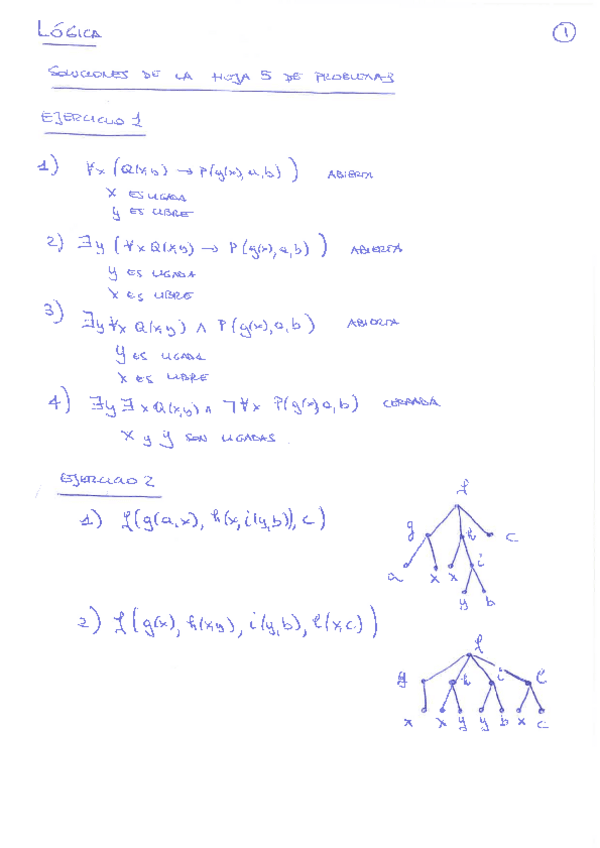 LÓGICA
1
SOLUCIONES DE LA HOJA 5 DE PROBLEMAS
EJERCICIO 1
1) ∀x (Q(x,y) → P(g(x),a,b)) ABIERTA
x ES LIGADA
y ES LIBRE
2) ∃y (∀x Q(x,y) → P(g(x),a,b)) ABIERTA
y ES LIGADA
x ES LIBRE
3) ∃y ∀x Q(x,y) ∧ P(g(x),a,b) ABIERTA
y ES LIGADA
x ES LIBRE
4) ∃y ∃x Q(x,y) ∧ ¬∀x P(g(x),a,b) CERRADA
x y y SON LIGADAS
EJERCICIO 2
1) f(g(a,x), h(x,i(y,b)),c)
f
g h c
a x x i
y b
2) f(g(x), h(x,y), i(y,b), l(x,c))
f
g h i l
x x y y b x c